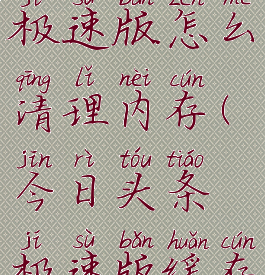 jí sù bǎn zěn me
极速版怎么
qīng lǐ nèi cún
清理内存(
jīn rì tóu tiáo
今日头条
jí sù bǎn huǎn cún
极速版缓存